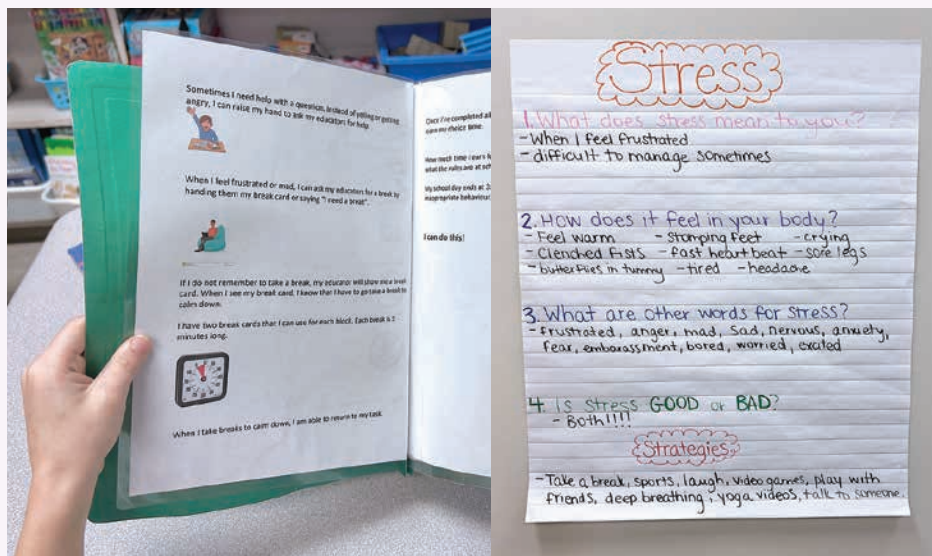 Sometimes I need help with a question. Instead of yelling or getting
angry, I can raise my hand to ask my educators for help.
When I feel frustrated or mad, I can ask my educators for a break by
handing them my break card or saying "I need a break".
If I do not remember to take a break, my educator will show me a break
card. When I see my break card, I know that I have to go take a break to
calm down.
I have two break cards that I can use for each block. Each break is 2
minutes long.
When I take breaks to calm down, I am able to return to my task.
Once I've completed all
earn my choice time.
How much time I earn
what the rules are at
My school day ends at
inappropriate behaviour
I can do this!
Stress
1. What does stress mean to you?
- When I feel frustrated
- difficult to manage sometimes
2. How does it feel in your body?
- Feel warm - Stomping feet - crying
- Clenched fists - fast heart beat - sore legs
- butterflies in tummy - tired - headache
3. What are other words for stress?
- frustrated, anger, mad, sad, nervous, anxiety,
fear, embarassment, bored, worried, excited
4. Is stress GOOD or BAD?
- Both!!!!
Strategies
- Take a break, sports, laugh, video games, play with
friends, deep breathing, yoga videos, talk to someone.